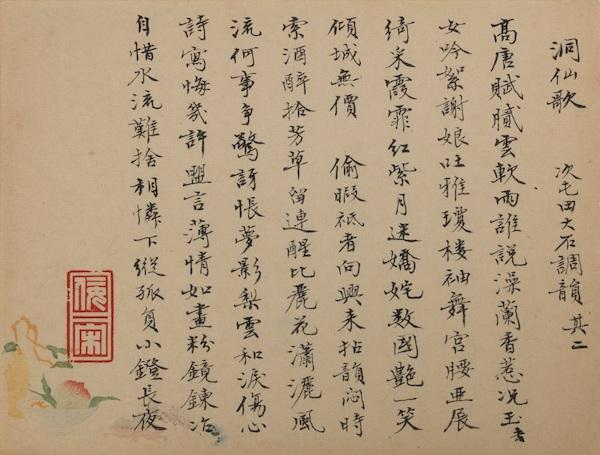 洞仙歌 次屯田大石調韻 其二
高唐賦膩雲軟雨誰說澡蘭香惹况玉
女吟絮謝娘吐雅瓊楼袖舞宮腰亞展
綺采霞霏紅紫月迷嬌姹数國艷一笑
傾城無價 偷暇祗者向興来拈韻悶時
索酒醉拾芳草留連醒比麗花瀟灑風
流何事争驚訝悵夢影梨雲和淚傷心
詩寫悔幾許盟言薄情如畫粉鏡鍊冶
自惜水流難捨相憐下縱孤負小鐙長夜